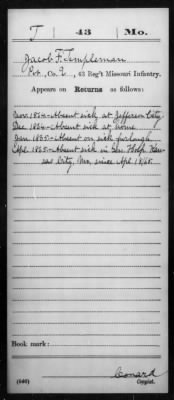 T | 43 | Mo.
Jacob F. Templeman
Pvt., Co. , 43 Reg't Missouri Infantry.
Appears on
Returns as follows:
Nov. 1864–Absent sick, at Jefferson City
Dec 1864–Absent sick at home
Jan 1865–Absent on sick furlough
Apl. 1865–Absent sick in Gen. Hosp. Kan-
sas City, Mo. since Apl. 18/65.
Book mark:
(646)
Conard
Copyist.